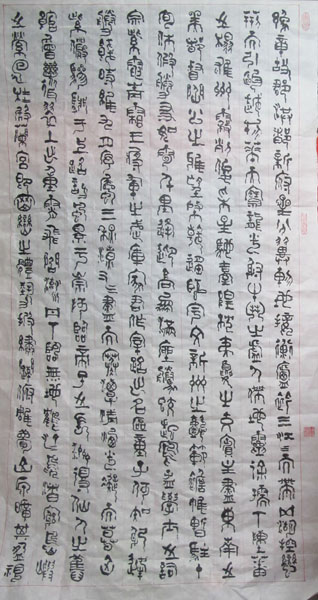 豫章故郡洪都新府星分翼軫地接衡廬襟三江而帶五湖控蠻
荊而引甌越物華天寶龍光射牛斗之墟人傑地靈徐孺下陳蕃
之榻雄州霧列俊采星馳臺隍枕夷夏之交賓主盡東南之
美都督閻公之雅望棨戟遙臨宇文新州之懿範襜帷暫駐十
旬休假勝友如雲千里逢迎高朋滿座騰蛟起鳳孟學士之詞
宗紫電青霜王將軍之武庫家君作宰路出名區童子何知躬逢
勝餞時維九月序屬三秋潦水盡而寒潭清煙光凝而暮山
紫儼驂騑於上路訪風景於崇阿臨帝子之長洲得仙人之舊
館層巒聳翠上出重霄飛閣流丹下臨無地鶴汀鳧渚窮島嶼
之縈迴桂殿蘭宮即岡巒之體勢披繡闥俯雕甍山原曠其盈視